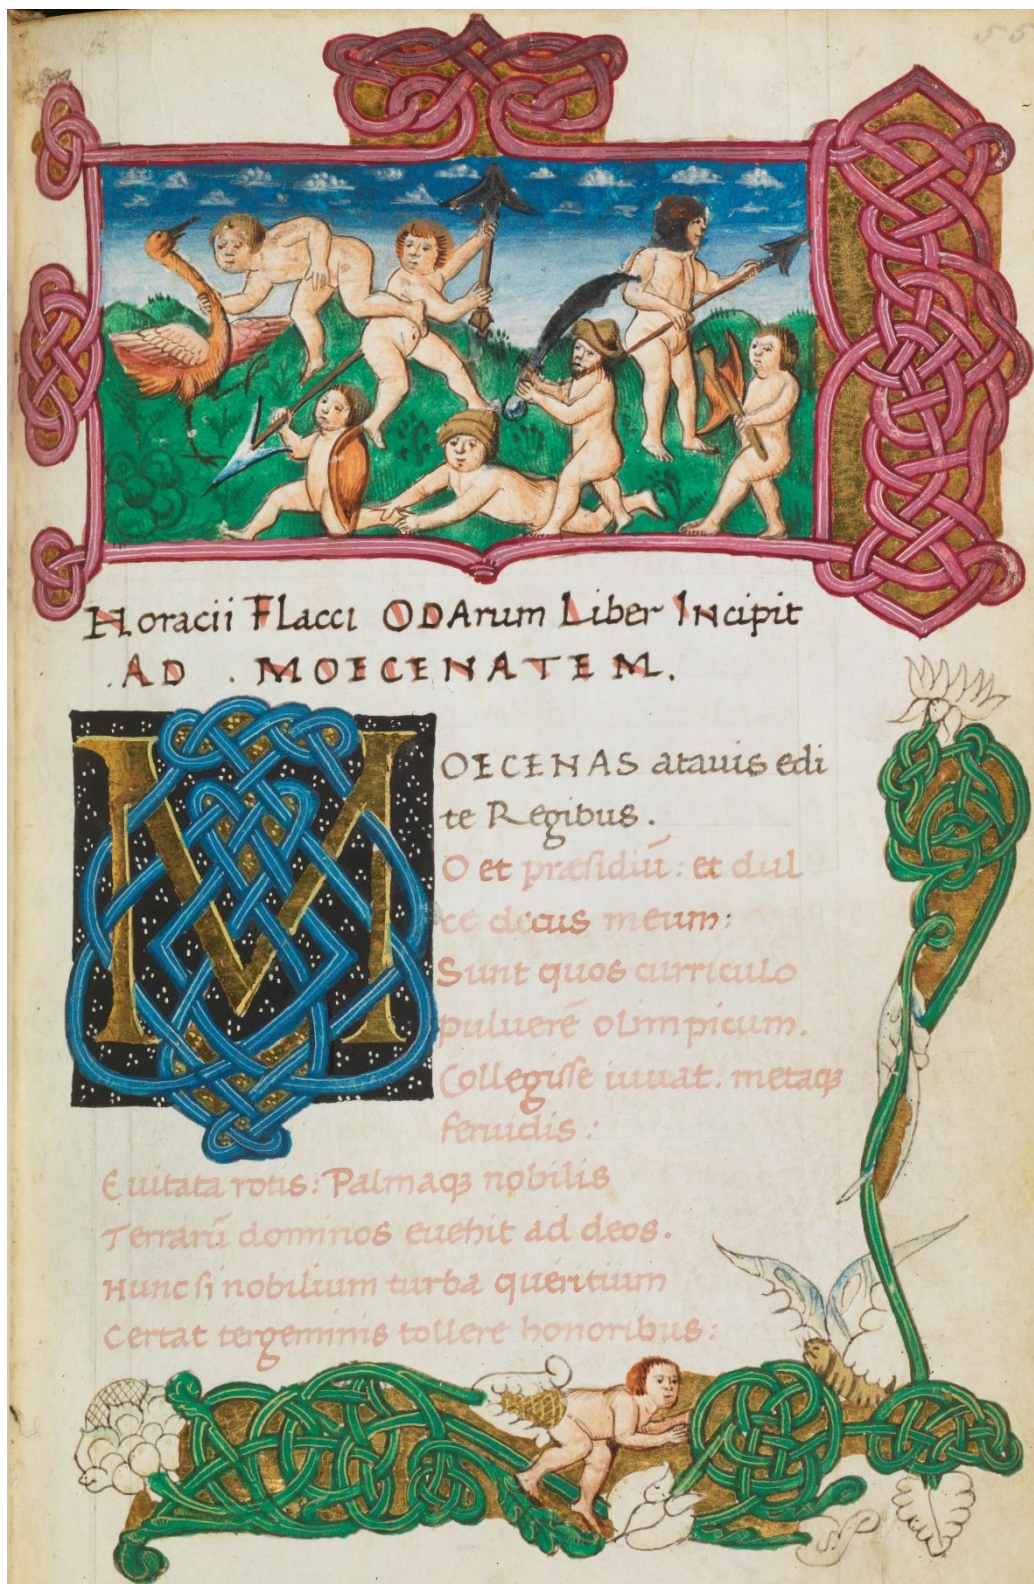 55
Horacii Flacci ODArum Liber INcipit
.AD . MOECENATEM.
MOECENAS atauis edi
te Regibus.
O et præsidiū: et dul
ce decus meum:
Sunt quos curriculo
puluerē olimpicum.
Collegisse iuuat. metaqꝫ
feruidis:
Euitata rotis: Palmaqꝫ nobilis
Terrarū dominos euehit ad deos.
Hunc si nobilium turba queritium
Certat tergeminis tollere honoribus: